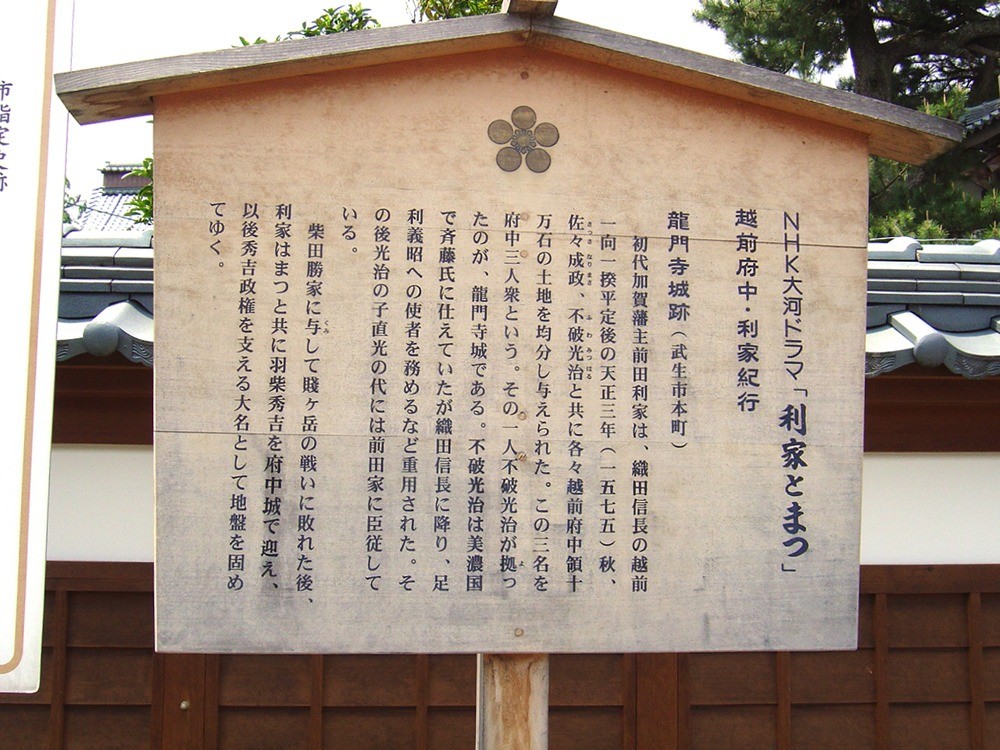 NHK大河ドラマ「利家とまつ」
越前府中・利家紀行
龍門寺城跡（武生市本町）
初代加賀藩主前田利家は、織田信長の越前
一向一揆平定後の天正三年（一五七五）秋、
佐々成政、不破光治と共に各々越前府中領十
さっさ なりまさ ふわ みつはる
万石の土地を均分し与えられた。この三名を
府中三人衆という。その一人不破光治が拠っ
よ
たのが、龍門寺城である。不破光治は美濃国
で斉藤氏に仕えていたが織田信長に降り、足
利義昭への使者を務めるなど重用された。そ
の後光治の子直光の代には前田家に臣従して
いる。
柴田勝家に与して賤ヶ岳の戦いに敗れた後、
くみ
利家はまつと共に羽柴秀吉を府中城で迎え、
以後秀吉政権を支える大名として地盤を固め
てゆく。
市指定史跡